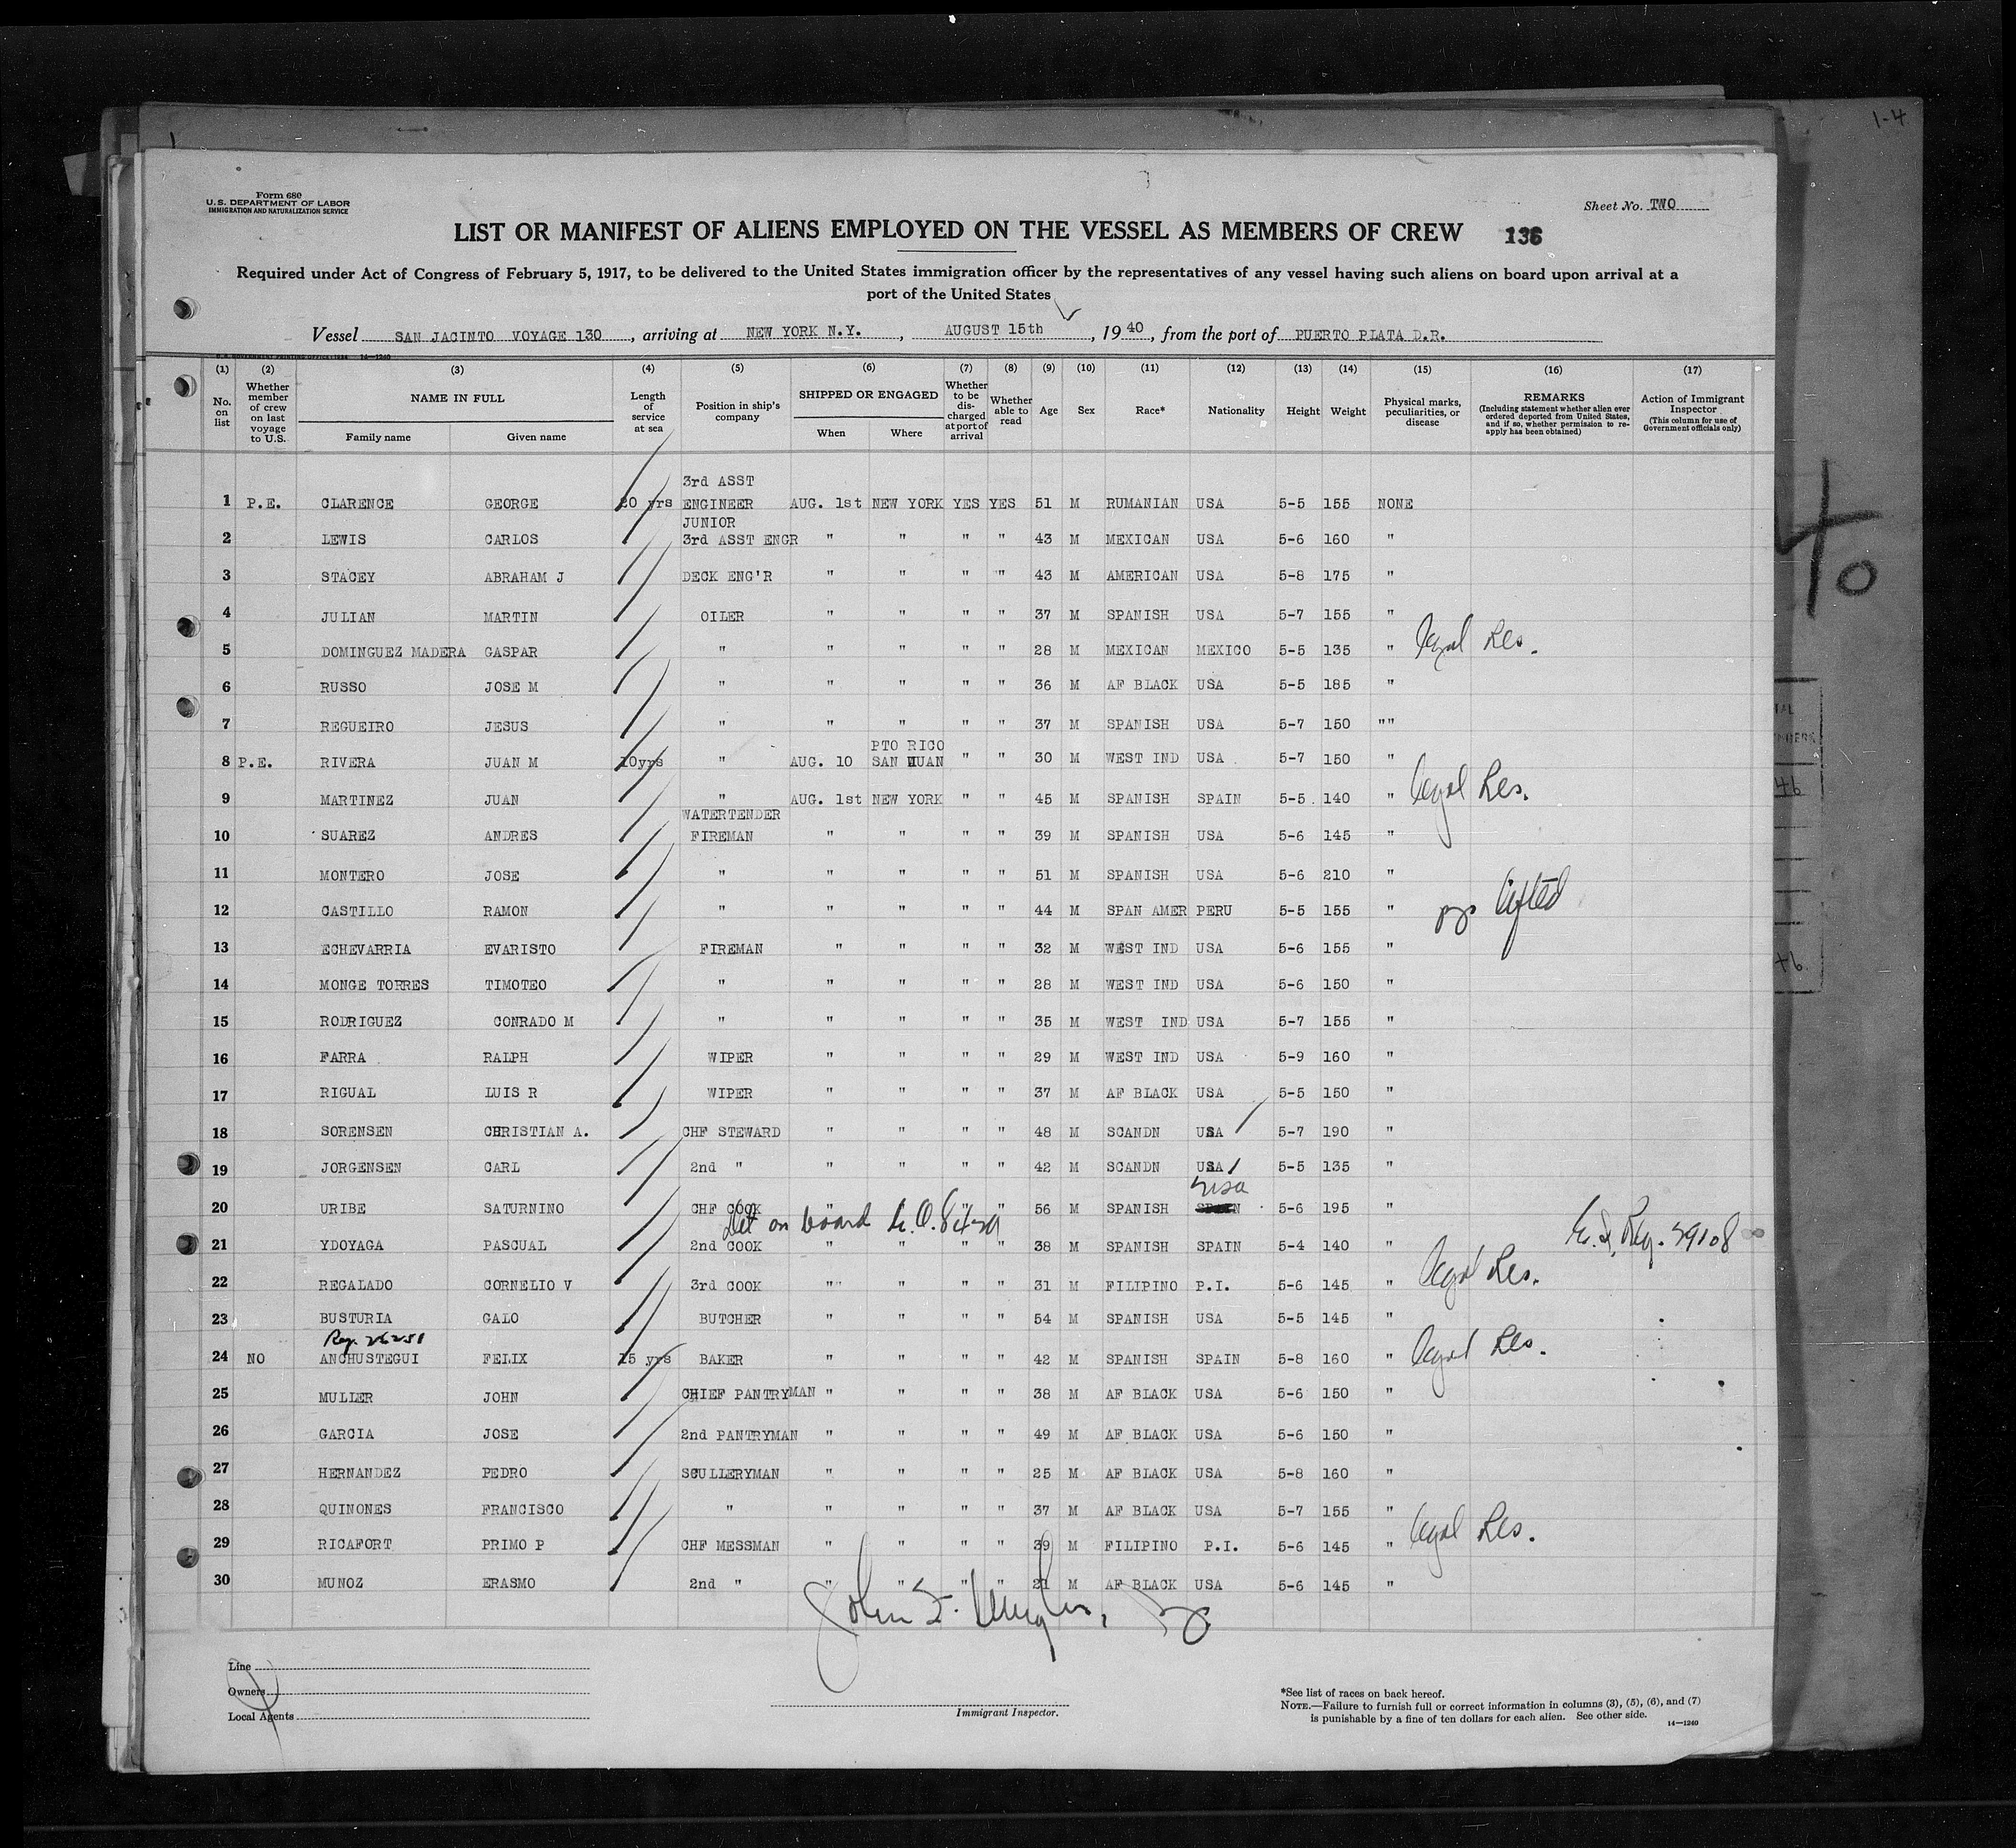 1-4
Form 680
U.S. DEPARTMENT OF LABOR
IMMIGRATION AND NATURALIZATION SERVICE
Sheet No. TWO
LIST OR MANIFEST OF ALIENS EMPLOYED ON THE VESSEL AS MEMBERS OF CREW 136
Required under Act of Congress of February 5, 1917, to be delivered to the United States immigration officer by the representatives of any vessel having such aliens on board upon arrival at a
port of the United States
Vessel SAN JACINTO VOYAGE 130, arriving at NEW YORK N.Y., AUGUST 15th, 1940, from the port of PUERTO PLATA D.R.
14—1240
(1) (2) (3) (4) (5) (6) (7) (8) (9) (10) (11) (12) (13) (14) (15) (16) (17)
No. on list Whether member of crew on last voyage to U.S. NAME IN FULL Family name Given name Length of service at sea Position in ship's company SHIPPED OR ENGAGED When Where Whether to be discharged at port of arrival Whether able to read Age Sex Race* Nationality Height Weight Physical marks, peculiarities, or disease REMARKS (Including statement whether alien ever ordered deported from United States, and if so, whether permission to reapply has been obtained) Action of Immigrant Inspector (This column for use of Government officials only)
3rd ASST
1 P.E. CLARENCE GEORGE 20 yrs ENGINEER AUG. 1st NEW YORK YES YES 51 M RUMANIAN USA 5-5 155 NONE
JUNIOR
2 LEWIS CARLOS 3rd ASST ENGR " " " " 43 M MEXICAN USA 5-6 160 "
3 STACEY ABRAHAM J DECK ENG'R " " " " 43 M AMERICAN USA 5-8 175 "
4 JULIAN MARTIN OILER " " " " 37 M SPANISH USA 5-7 155 "
5 DOMINGUEZ MADERA GASPAR " " " " " 28 M MEXICAN MEXICO 5-5 135 " legal Res.
6 RUSSO JOSE M " " " " " 36 M AF BLACK USA 5-5 185 "
7 REGUEIRO JESUS " " " " " 37 M SPANISH USA 5-7 150 ""
PTO RICO
8 P.E. RIVERA JUAN M 10yrs " AUG. 10 SAN HUAN " " 30 M WEST IND USA 5-7 150 "
9 MARTINEZ JUAN " AUG. 1st NEW YORK " " 45 M SPANISH SPAIN 5-5 140 " legal Res.
WATERTENDER
10 SUAREZ ANDRES FIREMAN " " " " 39 M SPANISH USA 5-6 145 "
11 MONTERO JOSE " " " " " 51 M SPANISH USA 5-6 210 "
12 CASTILLO RAMON " " " " " 44 M SPAN AMER PERU 5-5 155 " lifted
13 ECHEVARRIA EVARISTO FIREMAN " " " " 32 M WEST IND USA 5-6 155 "
14 MONGE TORRES TIMOTEO " " " " " 28 M WEST IND USA 5-6 150 "
15 RODRIGUEZ CONRADO M " " " " " 35 M WEST IND USA 5-7 155 "
16 FARRA RALPH WIPER " " " " 29 M WEST IND USA 5-9 160 "
17 RIGUAL LUIS R WIPER " " " " 37 M AF BLACK USA 5-5 150 "
18 SORENSEN CHRISTIAN A. CHF STEWARD " " " " 48 M SCANDN USA 5-7 190 "
19 JORGENSEN CARL 2nd " " " " " 42 M SCANDN USA 5-5 135 "
usa
20 URIBE SATURNINO CHF COOK " " " " 56 M SPANISH SPAIN 5-6 195 "
Det on board
21 YDOYAGA PASCUAL 2nd COOK " " " " 38 M SPANISH SPAIN 5-4 140 " Reg. 29108
22 REGALADO CORNELIO V 3rd COOK "" " " " 31 M FILIPINO P.I. 5-6 145 " legal Res.
23 BUSTURIA GALO BUTCHER " " " " 54 M SPANISH USA 5-5 145 "
Reg. 26251
24 NO ANCHUSTEGUI FELIX 15 yrs BAKER " " " " 42 M SPANISH SPAIN 5-8 160 " legal Res.
25 MULLER JOHN CHIEF PANTRYMAN " " " " 38 M AF BLACK USA 5-6 150 "
26 GARCIA JOSE 2nd PANTRYMAN " " " " 49 M AF BLACK USA 5-6 150 "
27 HERNANDEZ PEDRO SCULLERYMAN " " " " 25 M AF BLACK USA 5-8 160 "
28 QUINONES FRANCISCO " " " " " 37 M AF BLACK USA 5-7 155 "
29 RICAFORT PRIMO P CHF MESSMAN " " " " 39 M FILIPINO P.I. 5-6 145 " legal Res.
30 MUNOZ ERASMO 2nd " " " " " 21 M AF BLACK USA 5-6 145 "
John
Line
Owners
Local Agents
Immigrant Inspector.
*See list of races on back hereof.
NOTE.—Failure to furnish full or correct information in columns (3), (5), (6), and (7)
is punishable by a fine of ten dollars for each alien. See other side.
14—1240